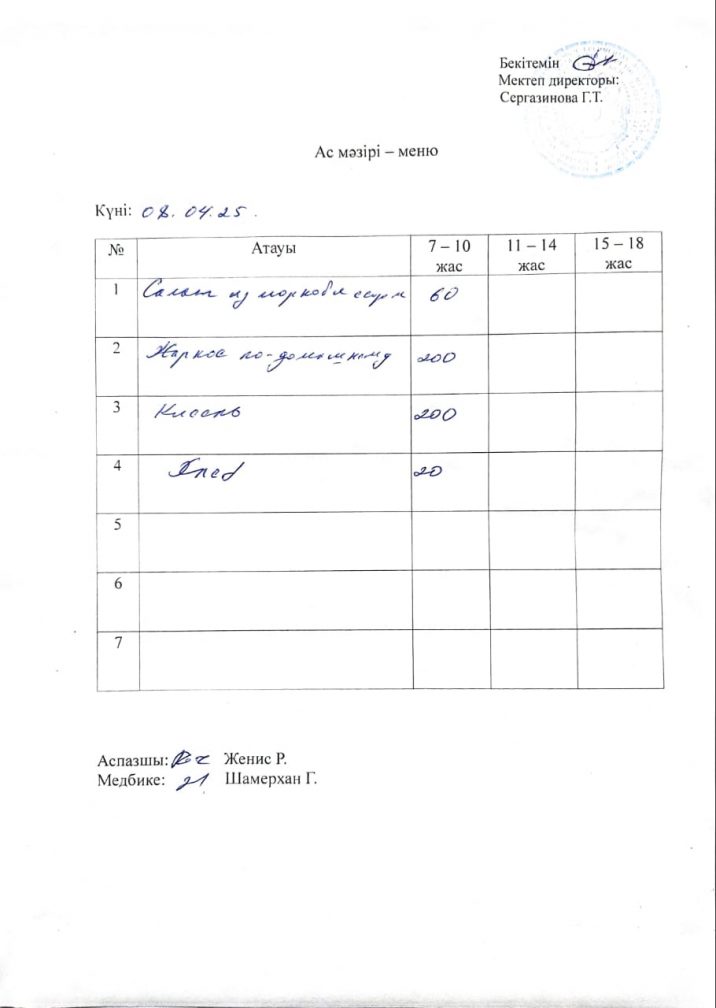 Бекітемін
Мектеп директоры:
Сергазинова Г.Т.
Ас мәзірі – меню
Күні: 08.04.25.
№ Атауы 7 – 10 жас 11 – 14 жас 15 – 18 жас
1 Салат из моркови 60
2 Жаркое по-домашнему 200
3 Кисель 200
4 Хлеб 20
5
6
7
Аспазшы: Женис Р.
Медбике: Шамерхан Г.